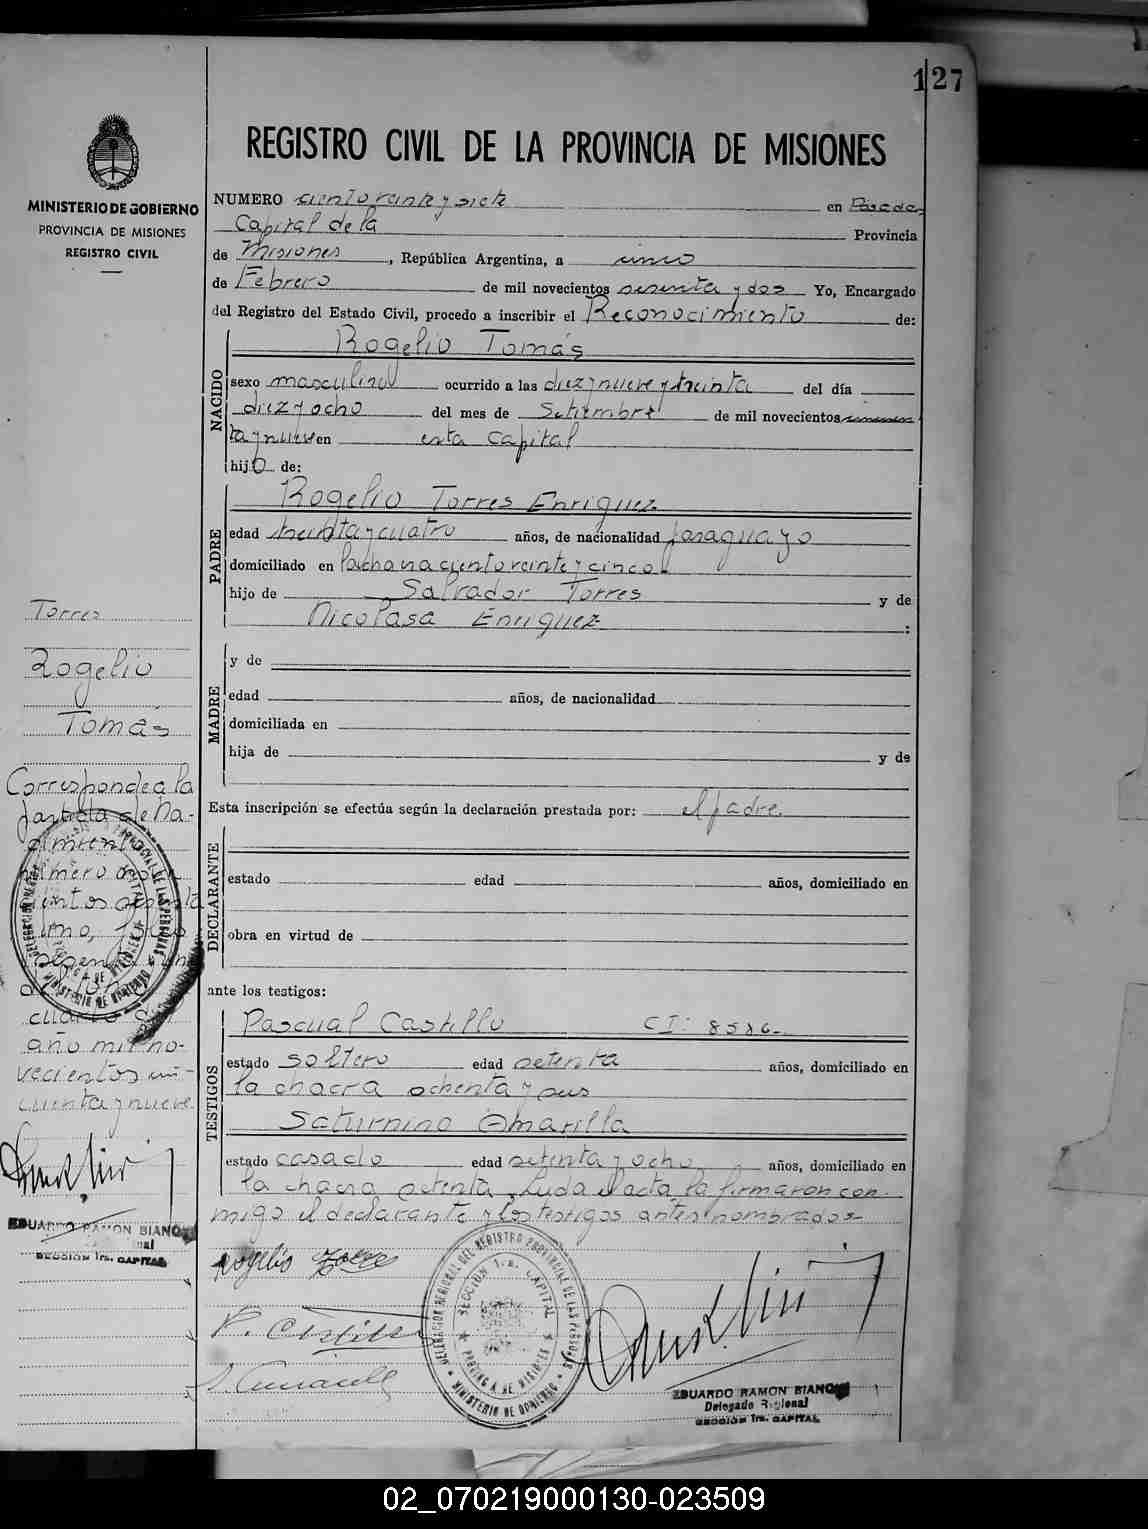 127
REGISTRO CIVIL DE LA PROVINCIA DE MISIONES
MINISTERIO DE GOBIERNO
PROVINCIA DE MISIONES
REGISTRO CIVIL
NUMERO ciento veinte y siete en Posadas
Capital de la Provincia
de Misiones, República Argentina, a cinco
de Febrero de mil novecientos sesenta y dos Yo, Encargado
del Registro del Estado Civil, procedo a inscribir el Reconocimiento de:
NACIDO
Rogelio Tomás
sexo masculino ocurrido a las diez y nueve y treinta del día
diez y ocho del mes de Setiembre de mil novecientos cincuen
ta y nueve en esta capital
hijo de:
PADRE
Rogelio Torres Enriquez
edad treinta y cuatro años, de nacionalidad paraguayo
domiciliado en la chacra ciento veinte y cinco
hijo de Salvador Torres y de
Nicolasa Enriquez :
MADRE
y de
edad años, de nacionalidad
domiciliada en
hija de y de
Esta inscripción se efectúa según la declaración prestada por: el padre.
DECLARANTE
estado edad años, domiciliado en
obra en virtud de
ante los testigos:
TESTIGOS
Pascual Castillo CI: 8586-
estado soltero edad setenta años, domiciliado en
la chacra ochenta y seis
Saturnino Amarilla
estado casado edad setenta y ocho años, domiciliado en
la chacra setenta. Leida el acta, la firmaron con-
migo el declarante y los testigos antes nombrados-
Rogelio Torres
P. Castillo
S. Amarilla
DELEGACION REGIONAL DEL REGISTRO PROVINCIAL DE LAS PERSONAS
SECCION 1ra. CAPITAL
PROVINCIA DE MISIONES
MINISTERIO DE GOBIERNO
EDUARDO RAMON BIANCHI
Delegado Regional
SECCION 1ra. CAPITAL
Torres
Rogelio
Tomás
Corresponde a la
partida de Na-
cimiento
número
cientos
uno,
cuarto del
año mil no-
vecientos cin-
cuenta y nueve.
EDUARDO RAMON BIANCHI
SECCION 1ra. CAPITAL
02_070219000130-023509